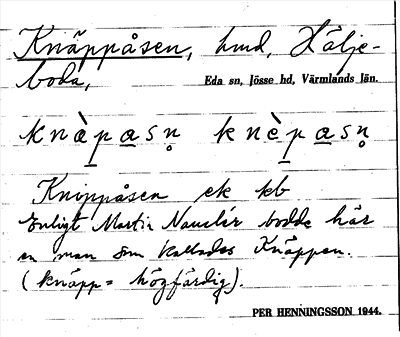 Knäppåsen, hmd, Hälje-
boda,
Eda sn, Jösse hd, Värmlands län.
knä̀pasn̥ knèpasn̥
Knippåsen ek kb
Enligt Martin Nauclér bodde här
en man som kallades Knäppen.
(knäpp = högfärdig).
PER HENNINGSSON 1944.